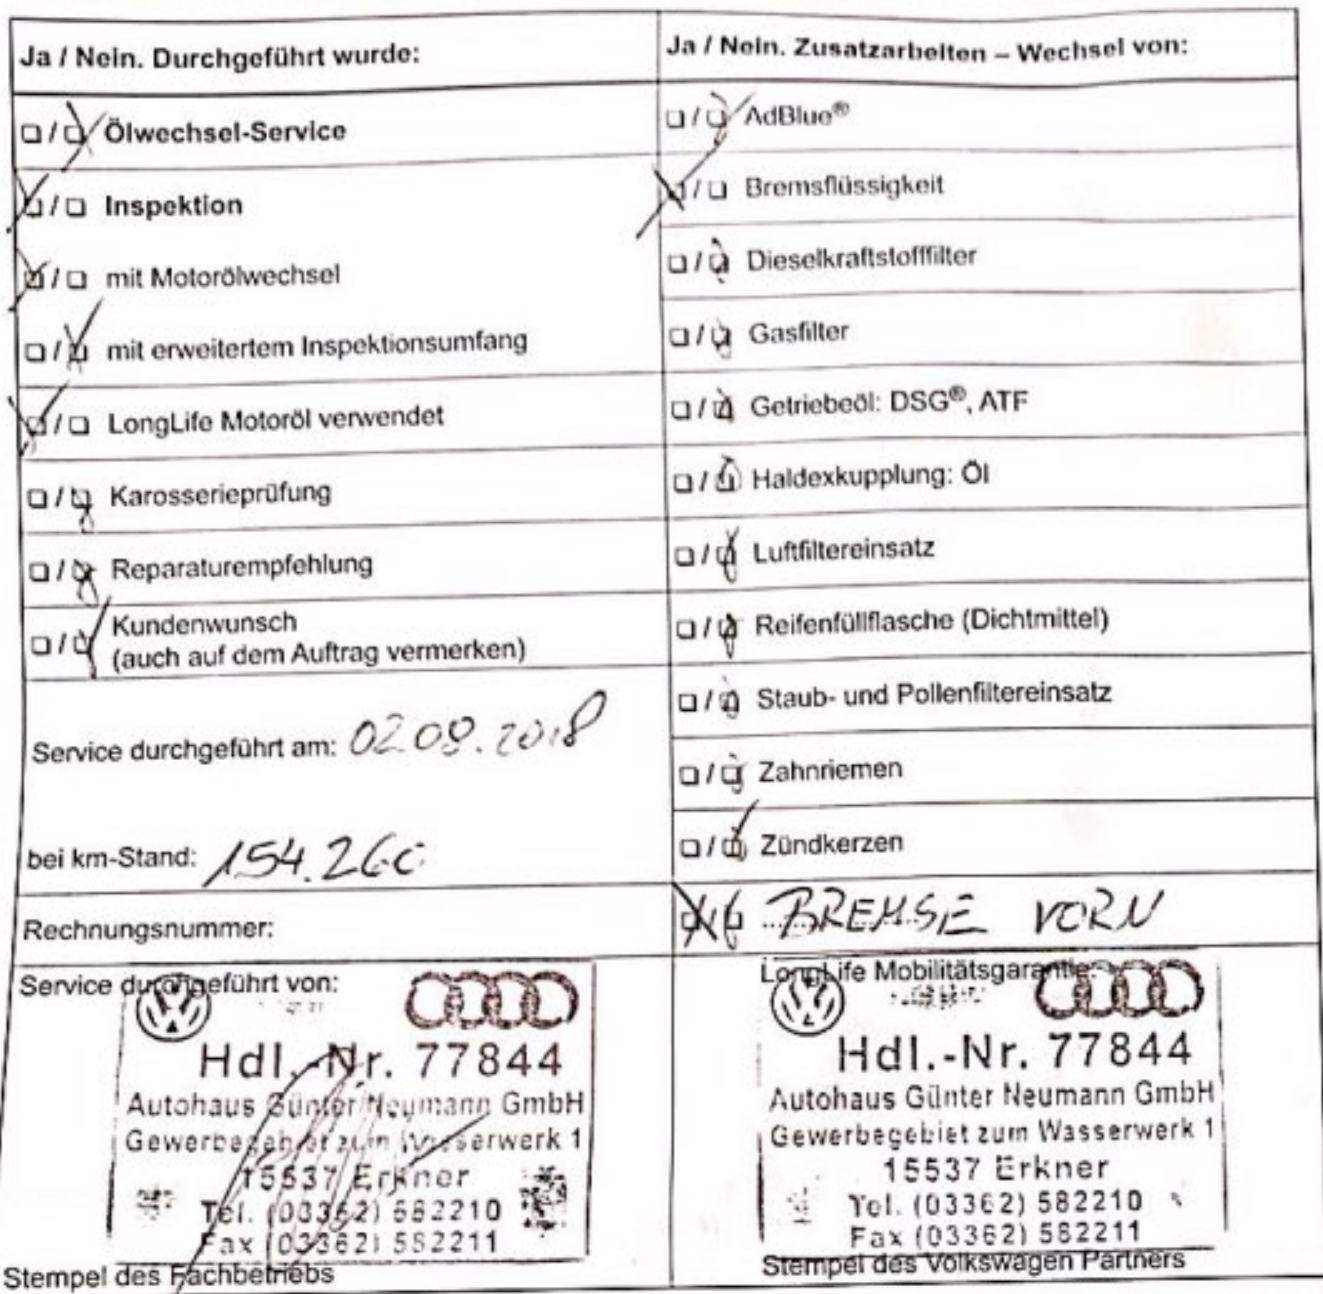 Ja / Nein. Durchgeführt wurde:
☐ / ☒ Ölwechsel-Service
☒ / ☐ Inspektion
☒ / ☐ mit Motorölwechsel
☐ / ☒ mit erweitertem Inspektionsumfang
☒ / ☐ LongLife Motoröl verwendet
☐ / ☒ Karosserieprüfung
☐ / ☒ Reparaturempfehlung
☐ / ☒ Kundenwunsch
(auch auf dem Auftrag vermerken)
Service durchgeführt am: 02.09.2018
bei km-Stand: 154.260
Rechnungsnummer:
Service durchgeführt von:
Hdl.-Nr. 77844
Autohaus Günter Neumann GmbH
Gewerbegebiet zum Wasserwerk 1
15537 Erkner
Tel. (03362) 582210
Fax (03362) 582211
Stempel des Fachbetriebs
Ja / Nein. Zusatzarbeiten – Wechsel von:
☐ / ☒ AdBlue®
☒ / ☐ Bremsflüssigkeit
☐ / ☒ Dieselkraftstofffilter
☐ / ☒ Gasfilter
☐ / ☒ Getriebeöl: DSG®, ATF
☐ / ☒ Haldexkupplung: Öl
☐ / ☒ Luftfiltereinsatz
☐ / ☒ Reifenfüllflasche (Dichtmittel)
☐ / ☒ Staub- und Pollenfiltereinsatz
☐ / ☒ Zahnriemen
☐ / ☒ Zündkerzen
☒ / ☐ BREMSE VORN
LongLife Mobilitätsgarantie:
Hdl.-Nr. 77844
Autohaus Günter Neumann GmbH
Gewerbegebiet zum Wasserwerk 1
15537 Erkner
Tel. (03362) 582210
Fax (03362) 582211
Stempel des Volkswagen Partners